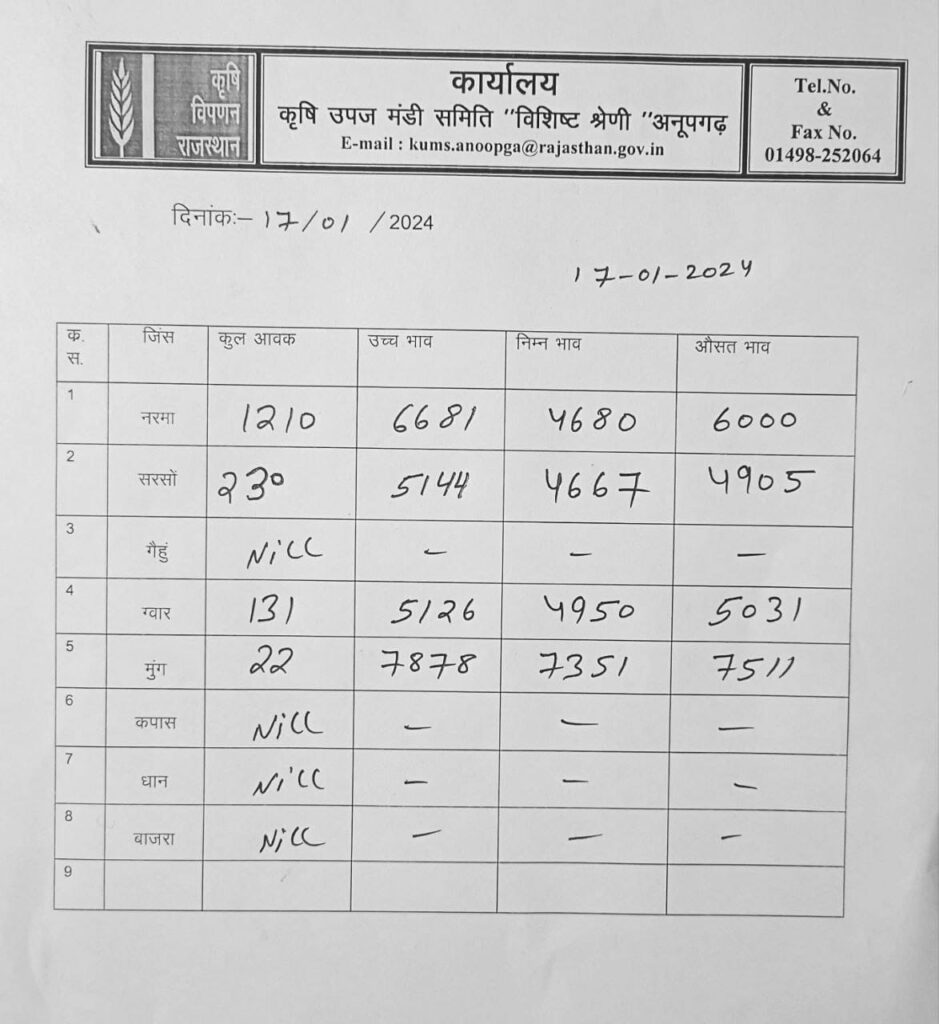 कृषि
विपणन
राजस्थान
कार्यालय
कृषि उपज मंडी समिति "विशिष्ट श्रेणी "अनूपगढ़
E-mail : kums.anoopga@rajasthan.gov.in
Tel.No.
&
Fax No.
01498-252064
दिनांकः– 17/01 /2024
17-01-2024
क. स. जिंस कुल आवक उच्च भाव निम्न भाव औसत भाव
1 नरमा 1210 6681 4680 6000
2 सरसों 230 5144 4667 4905
3 गैहुं NiLL – – –
4 ग्वार 131 5126 4950 5031
5 मुंग 22 7878 7351 7511
6 कपास NiLL – – –
7 धान NiLL – – –
8 बाजरा NiLL – – –
9